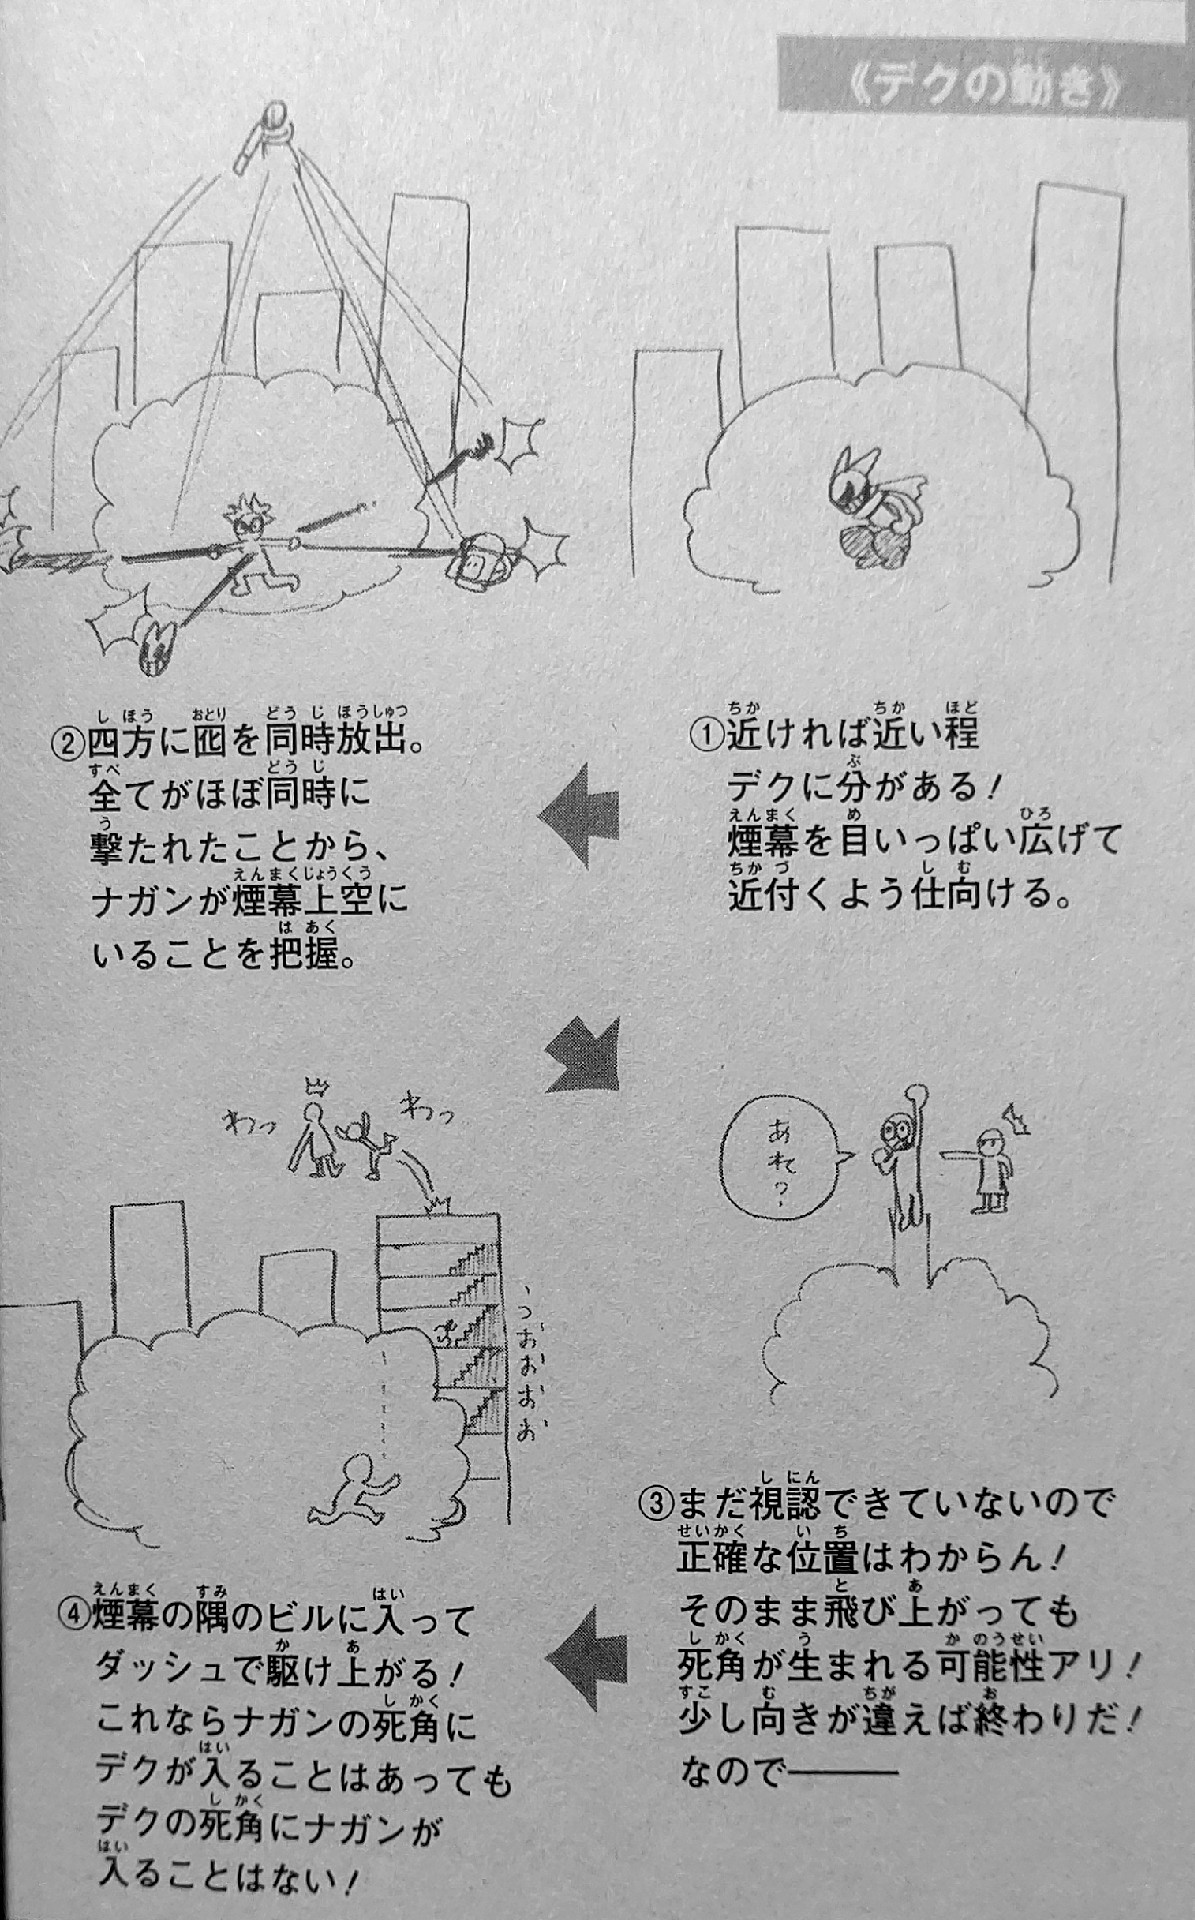 《デクの動き》
①近ければ近い程
デクに分がある！
煙幕を目いっぱい広げて
近付くよう仕向ける。
②四方に囮を同時放出。
全てがほぼ同時に
撃たれたことから、
ナガンが煙幕上空に
いることを把握。
あれ？
③まだ視認できていないので
正確な位置はわからん！
そのまま飛び上がっても
死角が生まれる可能性アリ！
少し向きが違えば終わりだ！
なので───
わっ
わっ
うおおおお
④煙幕の隅のビルに入って
ダッシュで駆け上がる！
これならナガンの死角に
デクが入ることはあっても
デクの死角にナガンが
入ることはない！